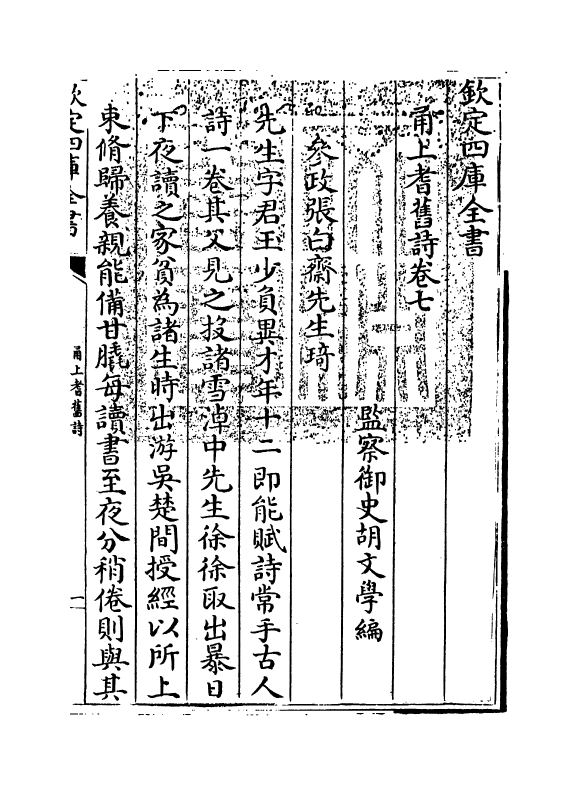 欽定四庫全書
甬上耆舊詩卷七
監察御史胡文學編
參政張白齋先生琦
先生字君玉少負異才年十二即能賦詩常手古人
詩一卷其父見之投諸雪淖中先生徐徐取出暴日
下夜讀之家貧為諸生時出游吳楚間授經以所上
束脩歸養親能備甘膬每讀書至夜分稍倦則與其
欽定四庫全書
甬上耆舊詩
一